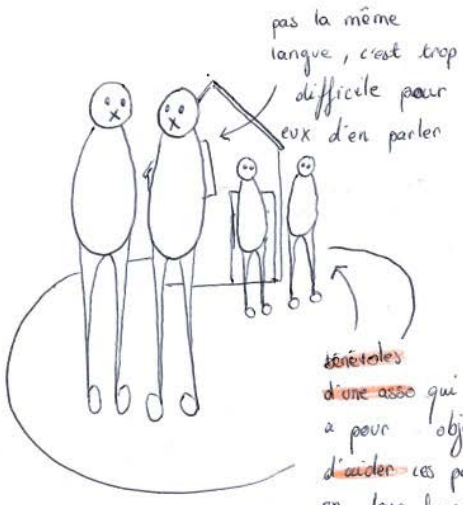 pas la même
langue, c'est trop
difficile pour
eux d'en parler
bénévoles
d'une asso qui
a pour
d'aider ces